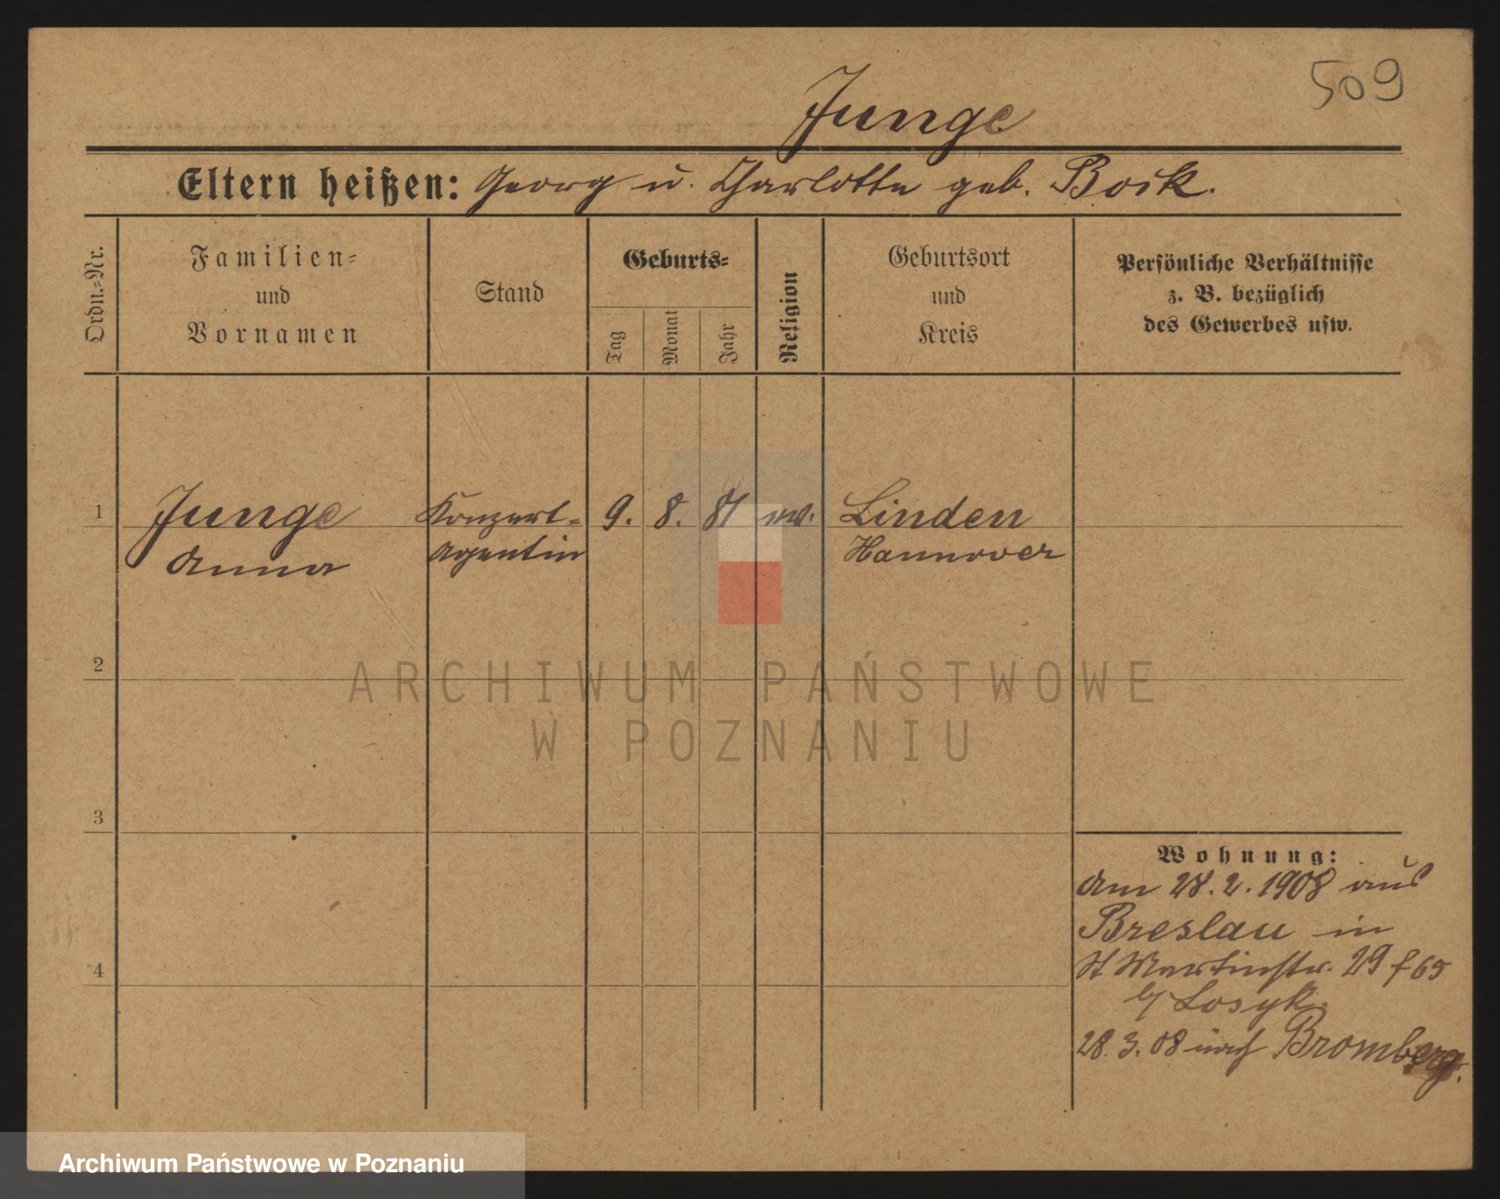 509
Junge
Eltern heißen: Georg u. Charlotte geb. Bock.
Ordn.-Nr.
Familien-
und
Vornamen
Stand
Geburts-
Tag
Monat
Jahr
Religion
Geburtsort
und
Kreis
Persönliche Verhältnisse
z. B. bezüglich
des Gewerbes usw.
1
Junge
Anna
Konzert-
Agentin
9. 8. 81 ev.
Linden
Hannover
2
ARCHIWUM PAŃSTWOWE
W POZNANIU
3
4
Wohnung:
Am 28.2.1908 aus
Breslau in
St Martinstr. 29
b/ Losyk.
28.3.08 nach Bromberg.
Archiwum Państwowe w Poznaniu